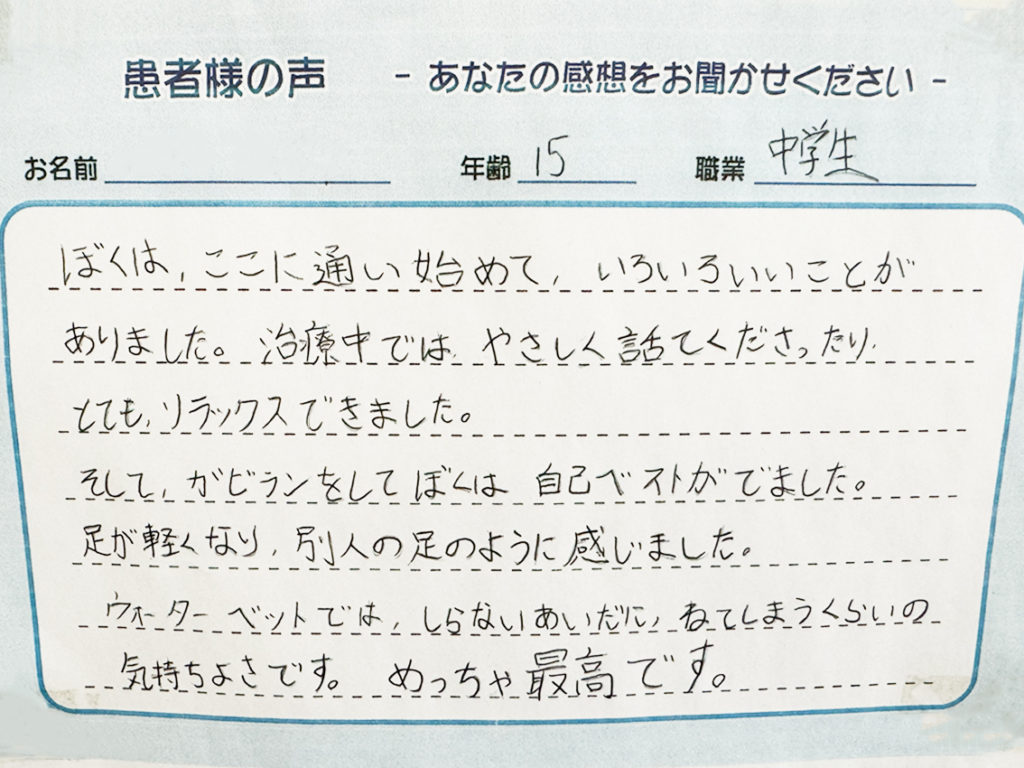 患者様の声 - あなたの感想をお聞かせください -
お名前 年齢 15 職業 中学生
ぼくは、ここに通い始めて、いろいろいいことが
ありました。治療中では、やさしく話てくださったり、
とても、リラックスできました。
そして、ガビランをしてぼくは自己ベストがでました。
足が軽くなり、別人の足のように感じました。
ウォーターベットでは、しらないあいだに、ねてしまうくらいの
気持ちよさです。めっちゃ最高です。